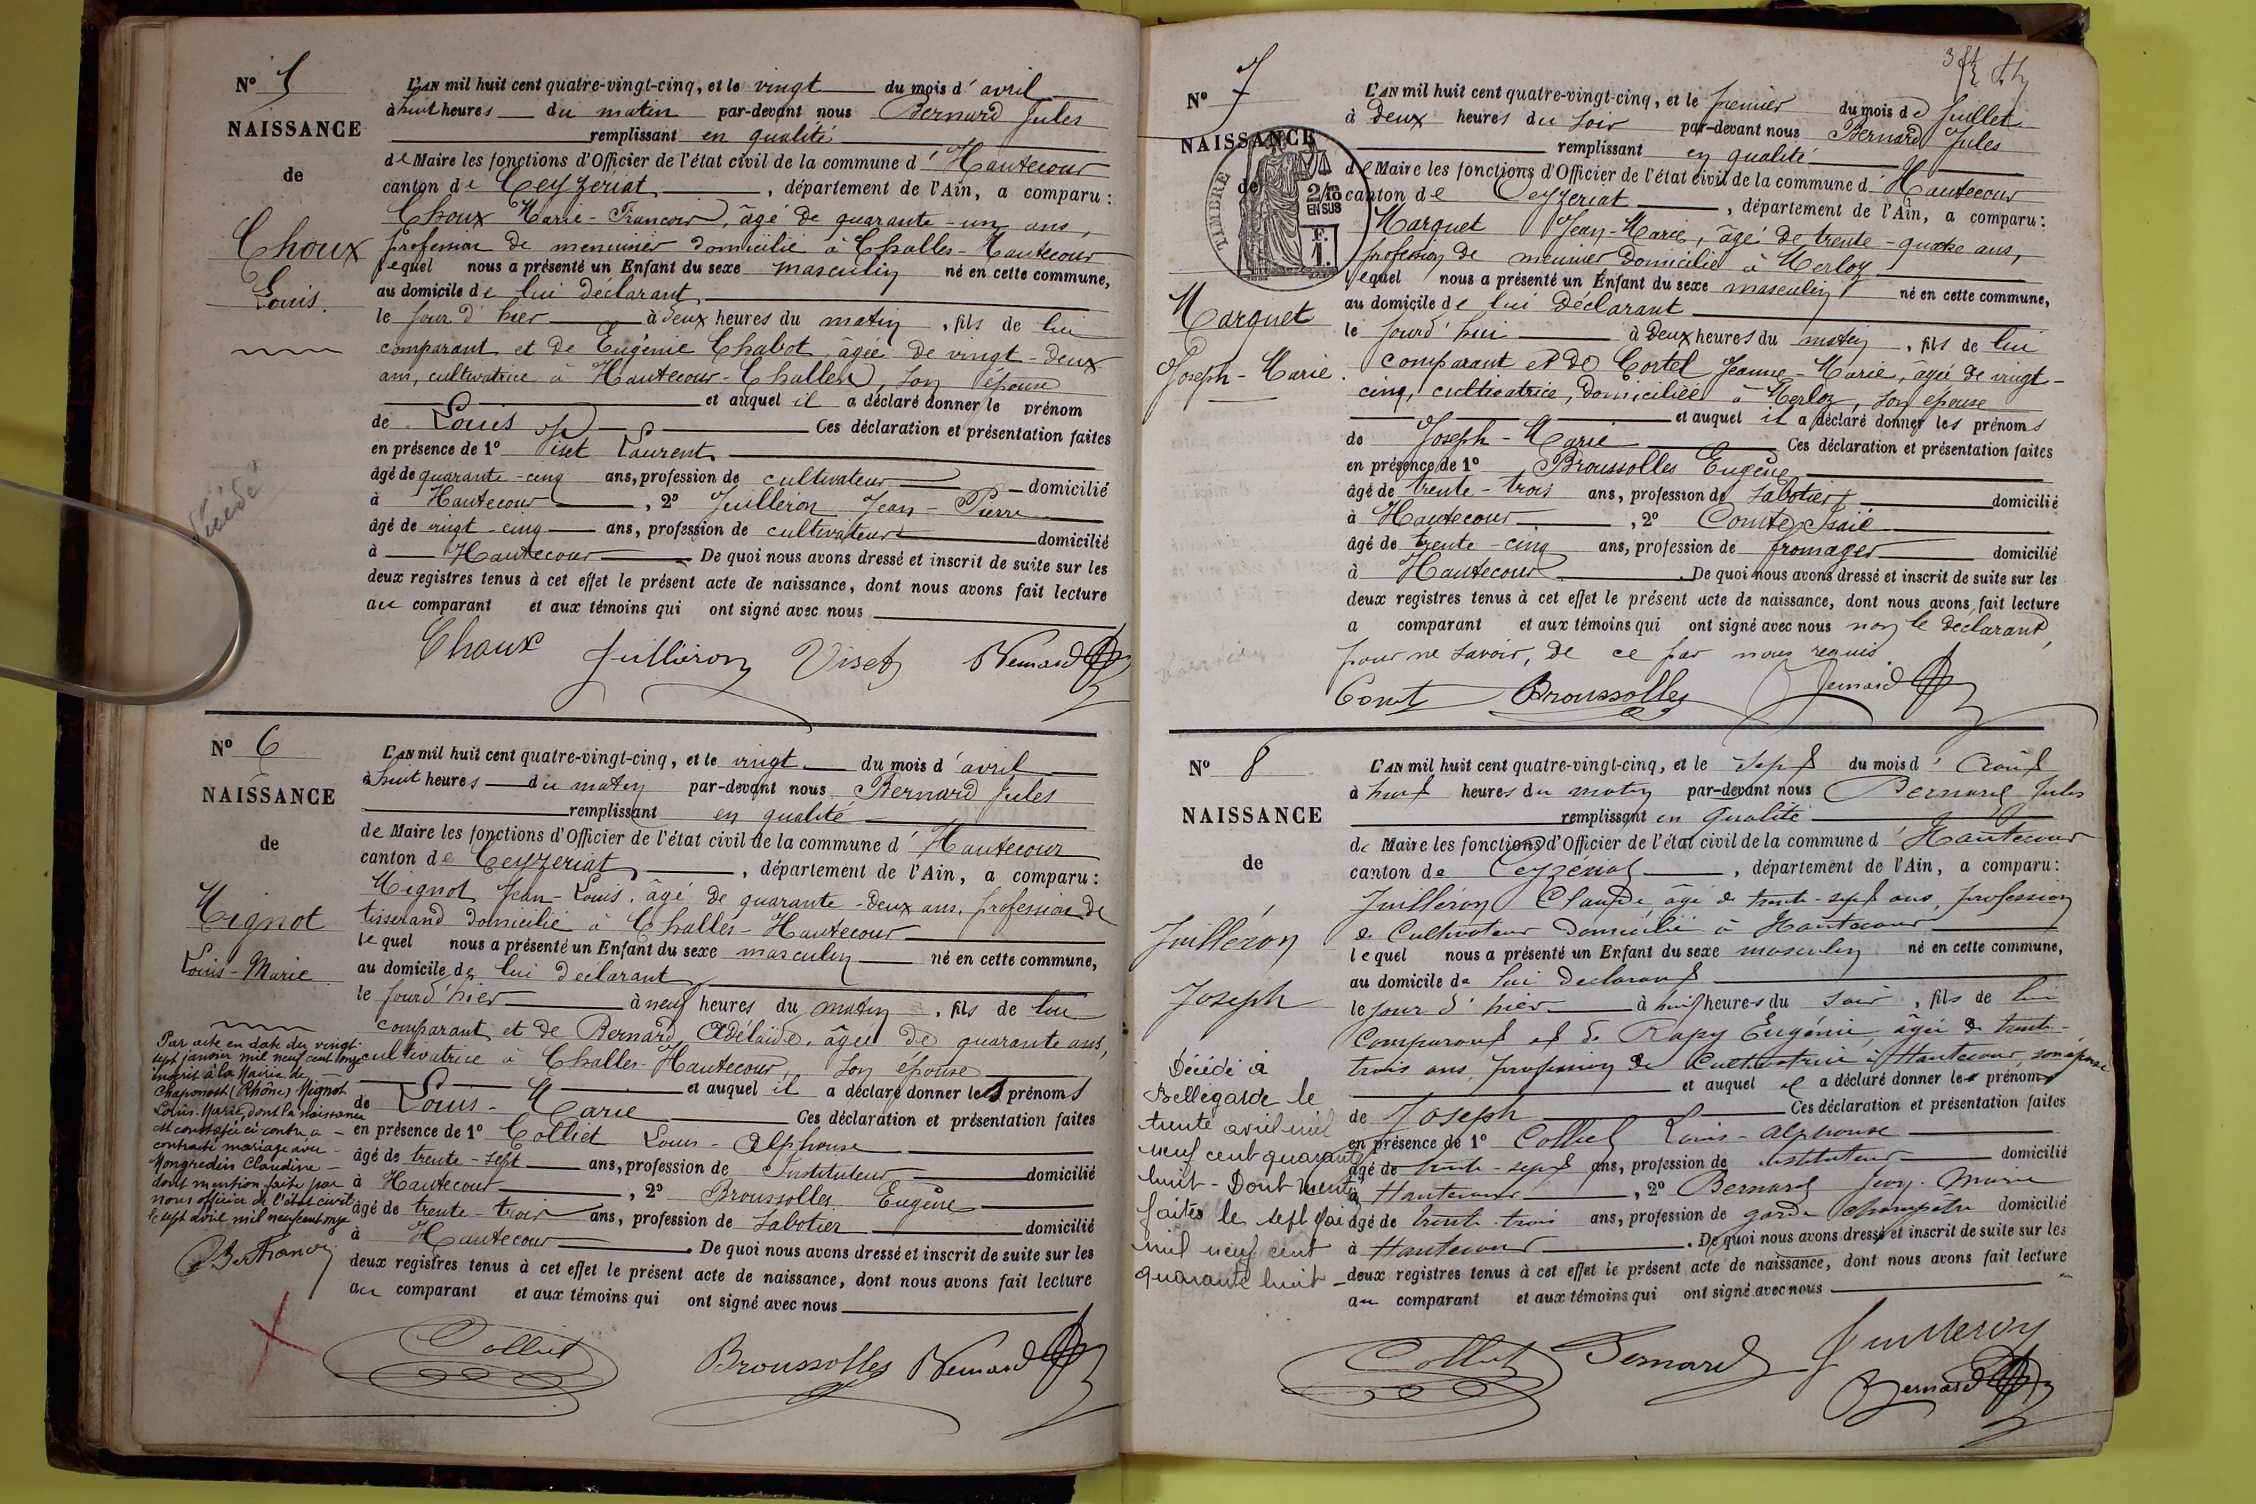 N° 5
NAISSANCE
de
Choux
Louis.
L'AN mil huit cent quatre-vingt-cinq, et le vingt du mois d'avril
à huit heures du matin par-devant nous Bernard Jules
remplissant en qualité
de Maire les fonctions d'Officier de l'état civil de la commune d'Hautecour
canton de Ceyzeriat, département de l'Ain, a comparu:
Choux Marie-François, âgé de quarante-un ans,
profession de menuisier domicilié à Challes-Hautecour
lequel nous a présenté un Enfant du sexe masculin né en cette commune,
au domicile de lui déclarant
le jour d'hier à deux heures du matin, fils de lui
comparant et de Eugénie Chabot, âgée de vingt-deux
ans, cultivatrice à Hautecour-Challes, son épouse
et auquel il a déclaré donner le prénom
de Louis Ces déclaration et présentation faites
en présence de 1° Viset Laurent
âgé de quarante-cinq ans, profession de cultivateur domicilié
à Hautecour, 2° Juilleron Jean-Pierre
âgé de vingt-cinq ans, profession de cultivateur domicilié
à Hautecour. De quoi nous avons dressé et inscrit de suite sur les
deux registres tenus à cet effet le présent acte de naissance, dont nous avons fait lecture
au comparant et aux témoins qui ont signé avec nous
Choux Juilleron Viset Bernard
décédé
N° 6
NAISSANCE
de
Mignot
Louis-Marie
L'AN mil huit cent quatre-vingt-cinq, et le vingt du mois d'avril
à huit heures du matin par-devant nous Bernard Jules
remplissant en qualité
de Maire les fonctions d'Officier de l'état civil de la commune d'Hautecour
canton de Ceyzeriat, département de l'Ain, a comparu:
Mignot Jean-Louis, âgé de quarante-deux ans, profession de
tisserand domicilié à Challes-Hautecour
lequel nous a présenté un Enfant du sexe masculin né en cette commune,
au domicile de lui déclarant
le jour d'hier à neuf heures du matin, fils de lui
comparant et de Bernard Adélaïde, âgée de quarante ans,
cultivatrice à Challes-Hautecour, son épouse
et auquel il a déclaré donner les prénoms
de Louis-Marie Ces déclaration et présentation faites
en présence de 1° Colliet Louis-Alphonse
âgé de trente-sept ans, profession de Instituteur domicilié
à Hautecour, 2° Broussolles Eugène
âgé de trente-trois ans, profession de sabotier domicilié
à Hautecour. De quoi nous avons dressé et inscrit de suite sur les
deux registres tenus à cet effet le présent acte de naissance, dont nous avons fait lecture
au comparant et aux témoins qui ont signé avec nous
Colliet Broussolles Bernard
Par acte en date du vingt-
sept janvier mil neuf cent onze
inscrit à la Mairie de
Chaponost (Rhône) Mignot
Louis-Marie, dont la naissance
est constatée ci-contre, a
contracté mariage avec
Mongredien Claudine
dont mention faite par
nous officier de l'état civil
le sept avril mil neuf cent onze
N° 7
NAISSANCE
de
Marquet
Joseph-Marie
TIMBRE
2/10
EN SUS
L'AN mil huit cent quatre-vingt-cinq, et le premier du mois de Juillet
à deux heures du soir par-devant nous Bernard Jules
remplissant en qualité
de Maire les fonctions d'Officier de l'état civil de la commune d'Hautecour
canton de Ceyzeriat, département de l'Ain, a comparu:
Marquet Jean-Marie, âgé de trente-quatre ans,
profession de meunier domicilié à Merloz
lequel nous a présenté un Enfant du sexe masculin né en cette commune,
au domicile de lui déclarant
le jourd'hui à deux heures du matin, fils de lui
comparant et de Cortel Jeanne-Marie, âgée de vingt-
cinq, cultivatrice, domiciliée à Merloz, son épouse
et auquel il a déclaré donner les prénoms
de Joseph-Marie Ces déclaration et présentation faites
en présence de 1° Broussolles Eugène
âgé de trente-trois ans, profession de sabotier domicilié
à Hautecour, 2° Comte Isaïe
âgé de trente-cinq ans, profession de fromager domicilié
à Hautecour. De quoi nous avons dressé et inscrit de suite sur les
deux registres tenus à cet effet le présent acte de naissance, dont nous avons fait lecture
a comparant et aux témoins qui ont signé avec nous non le déclarant,
pour ne savoir, de ce par nous requis
Comt Broussolles Bernard
N° 8
NAISSANCE
de
Juilléron
Joseph
L'AN mil huit cent quatre-vingt-cinq, et le sept du mois d'Août
à huit heures du matin par-devant nous Bernard Jules
remplissant en qualité
de Maire les fonctions d'Officier de l'état civil de la commune d'Hautecour
canton de Ceyzériat, département de l'Ain, a comparu:
Juilléron Claude âgé de trente-sept ans, profession
de Cultivateur domicilié à Hautecour
lequel nous a présenté un Enfant du sexe masculin né en cette commune,
au domicile de lui déclarant
le jour d'hier à huit heures du soir, fils de lui
comparant et de Rapy Eugénie, âgée de trente-
trois ans, profession de cultivatrice à Hautecour, son épouse
et auquel il a déclaré donner les prénoms
de Joseph Ces déclaration et présentation faites
en présence de 1° Colliet Louis-Alphonse
âgé de trente-sept ans, profession de instituteur domicilié
à Hautecour, 2° Bernard Jean-Marie
âgé de trente-trois ans, profession de garde champêtre domicilié
à Hautecour. De quoi nous avons dressé et inscrit de suite sur les
deux registres tenus à cet effet le présent acte de naissance, dont nous avons fait lecture
au comparant et aux témoins qui ont signé avec nous
Colliet Bernard Juilleron
Bernard
Décédé à
Bellegarde le
trente avril mil
neuf cent quarante
huit - Dont mention
faites le sept Mai
mil neuf cent
quarante huit